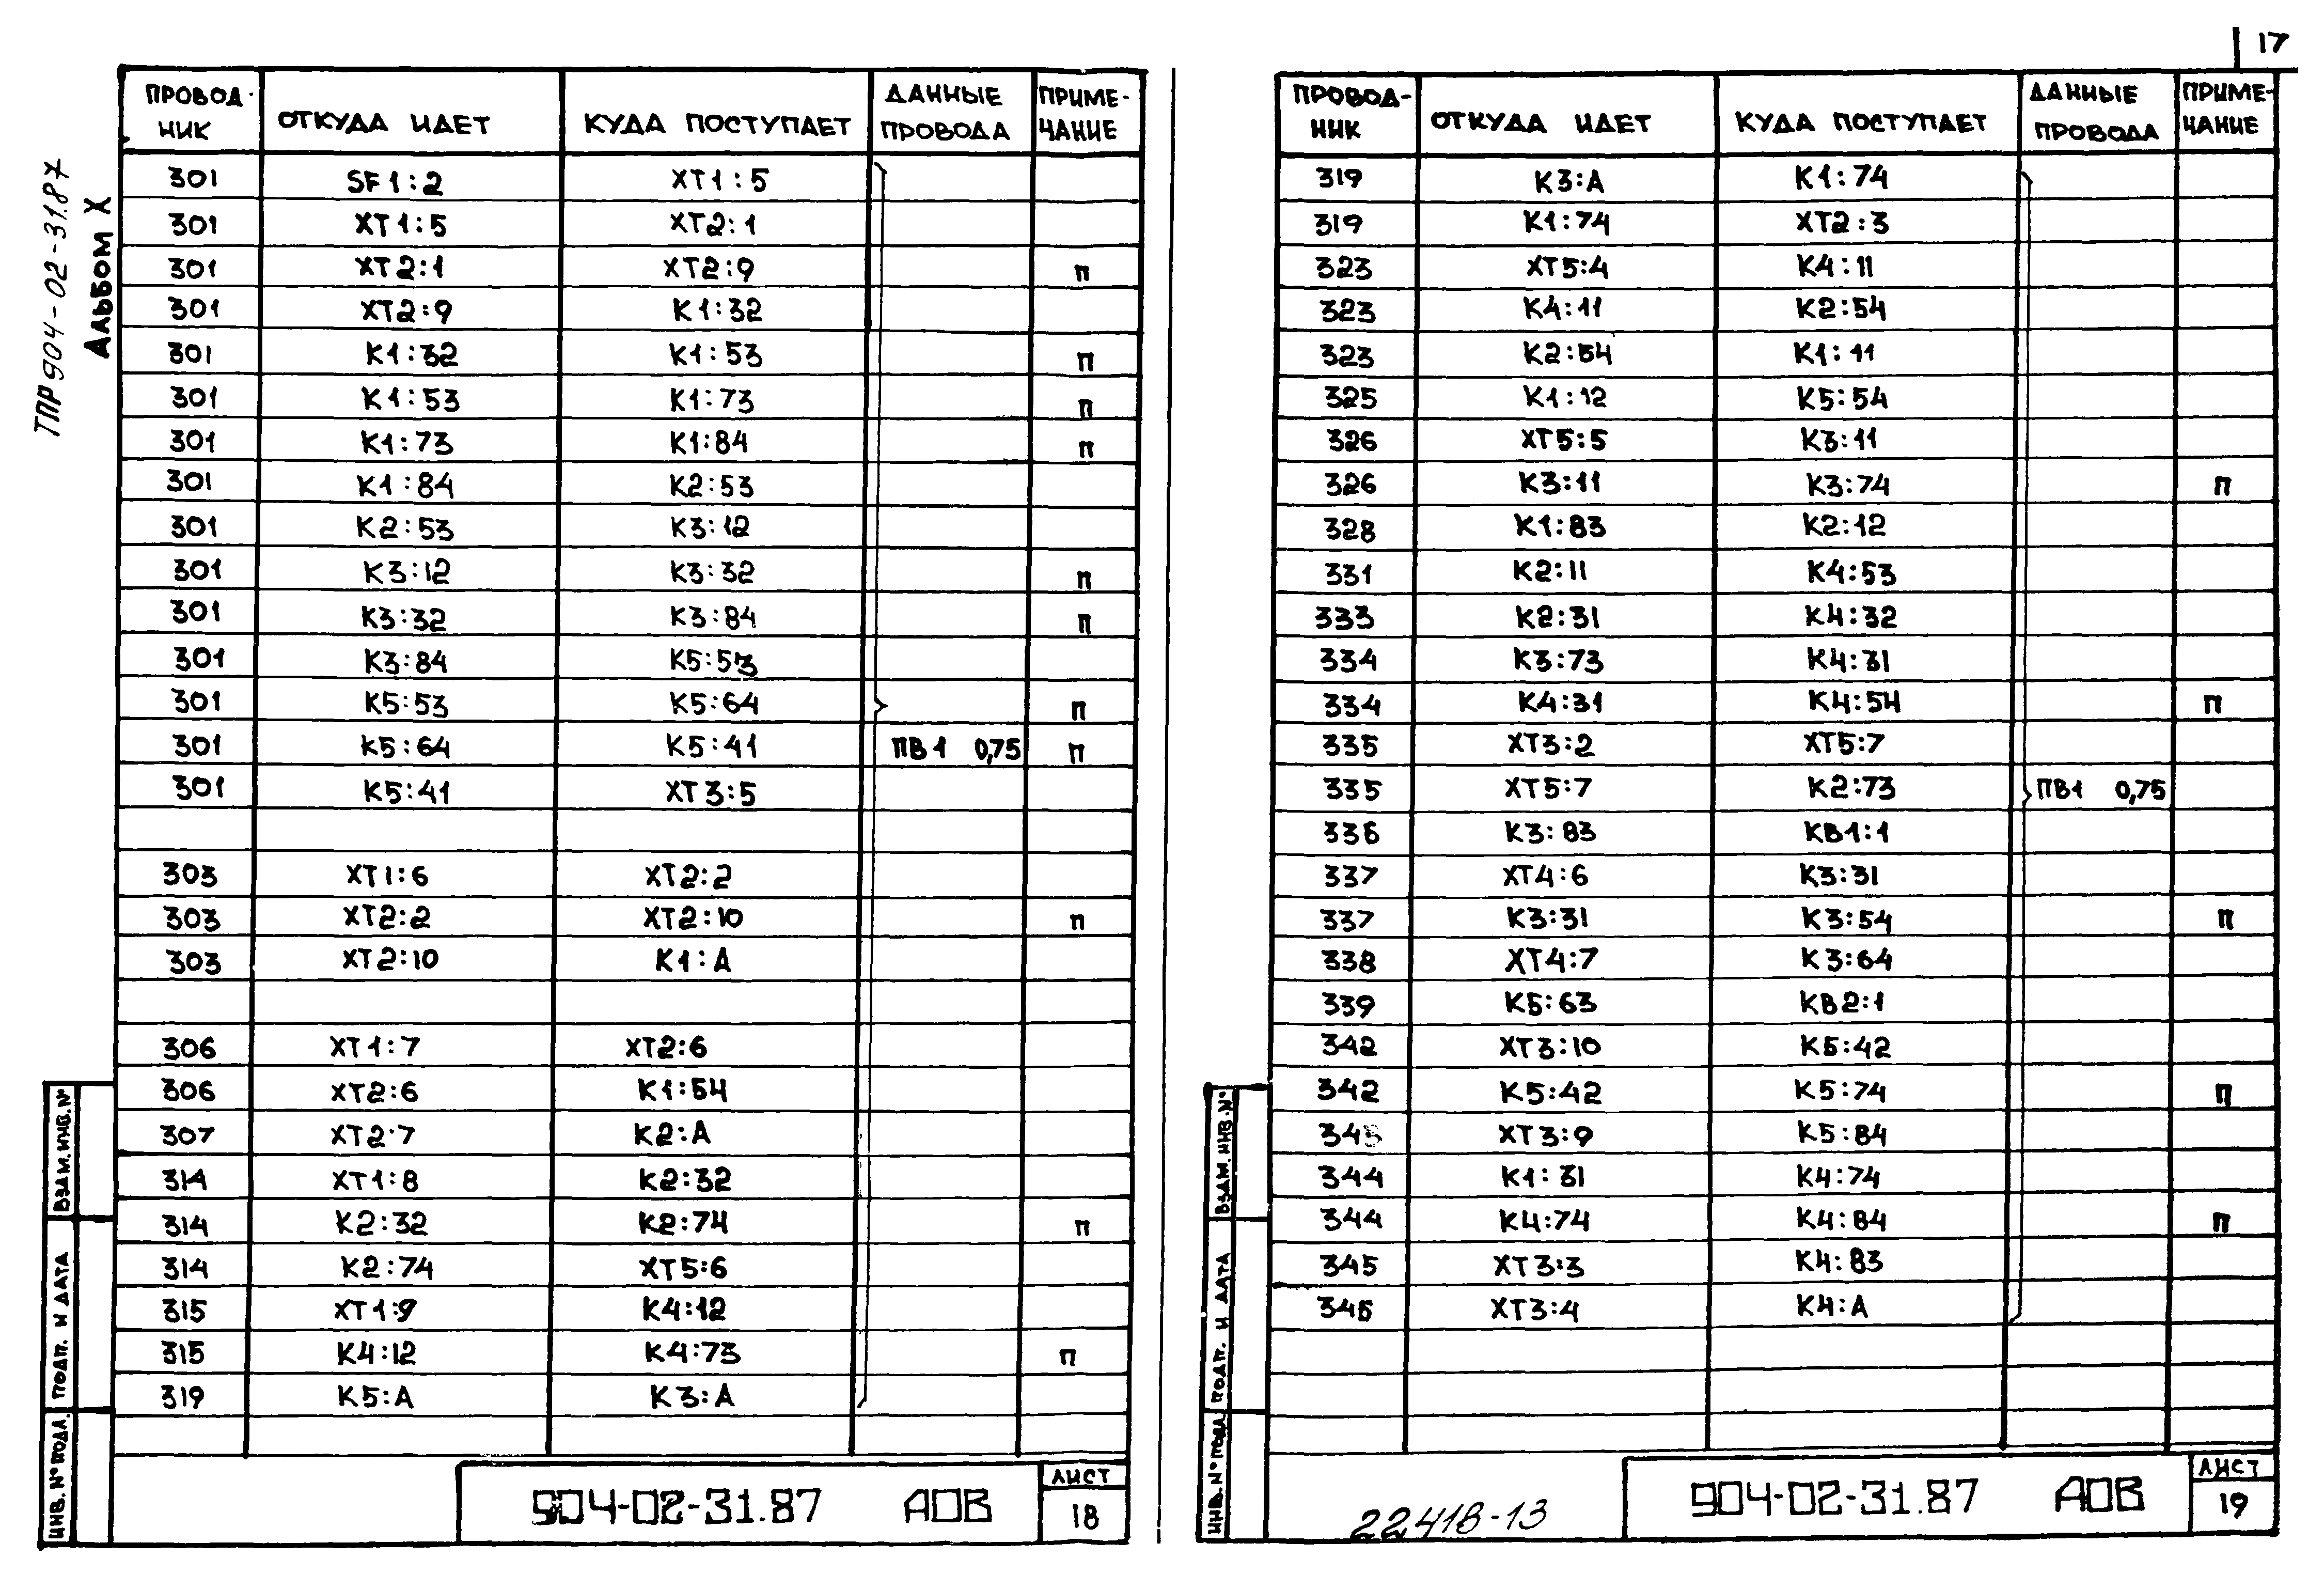 17
ТПР 904-02-31.87
Альбом X
ПРОВОД- НИК ОТКУДА ИДЕТ КУДА ПОСТУПАЕТ ДАННЫЕ ПРОВОДА ПРИМЕ- ЧАНИЕ
301 SF1:2 XT1:5
301 XT1:5 XT2:1
301 XT2:1 XT2:9 п
301 XT2:9 K1:32
301 K1:32 K1:53 п
301 K1:53 K1:73 п
301 K1:73 K1:84 п
301 K1:84 K2:53
301 K2:53 K3:12
301 K3:12 K3:32 п
301 K3:32 K3:84 п
301 K3:84 K5:53
301 K5:53 K5:64 п
301 K5:64 K5:41 ПВ1 0,75 п
301 K5:41 XT3:5
303 XT1:6 XT2:2
303 XT2:2 XT2:10 п
303 XT2:10 K1:A
306 XT1:7 XT2:6
306 XT2:6 K1:54
307 XT2:7 K2:A
314 XT1:8 K2:32
314 K2:32 K2:74 п
314 K2:74 XT5:6
315 XT1:9 K4:12
315 K4:12 K4:73 п
319 K5:A K3:A
ВЗАМ. ИНВ. №
ПОДП. И ДАТА
ИНВ. № ПОДЛ.
904-02-31.87 АОВ
ЛИСТ
18
ПРОВОД- НИК ОТКУДА ИДЕТ КУДА ПОСТУПАЕТ ДАННЫЕ ПРОВОДА ПРИМЕ- ЧАНИЕ
319 K3:A K1:74
319 K1:74 XT2:3
323 XT5:4 K4:11
323 K4:11 K2:54
323 K2:54 K1:11
325 K1:12 K5:54
326 XT5:5 K3:11
326 K3:11 K3:74 п
328 K1:83 K2:12
331 K2:11 K4:53
333 K2:31 K4:32
334 K3:73 K4:31
334 K4:31 K4:54 п
335 XT3:2 XT5:7
335 XT5:7 K2:73 ПВ1 0,75
336 K3:83 KB1:1
337 XT4:6 K3:31
337 K3:31 K3:54 п
338 XT4:7 K3:64
339 K5:63 KB2:1
342 XT3:10 K5:42
342 K5:42 K5:74 п
XT3:9 K5:84
344 K1:31 K4:74
344 K4:74 K4:84 п
345 XT3:3 K4:83
346 XT3:4 K4:A
ВЗАМ. ИНВ. №
ПОДП. И ДАТА
ИНВ. № ПОДЛ.
22418-13
904-02-31.87 АОВ
ЛИСТ
19